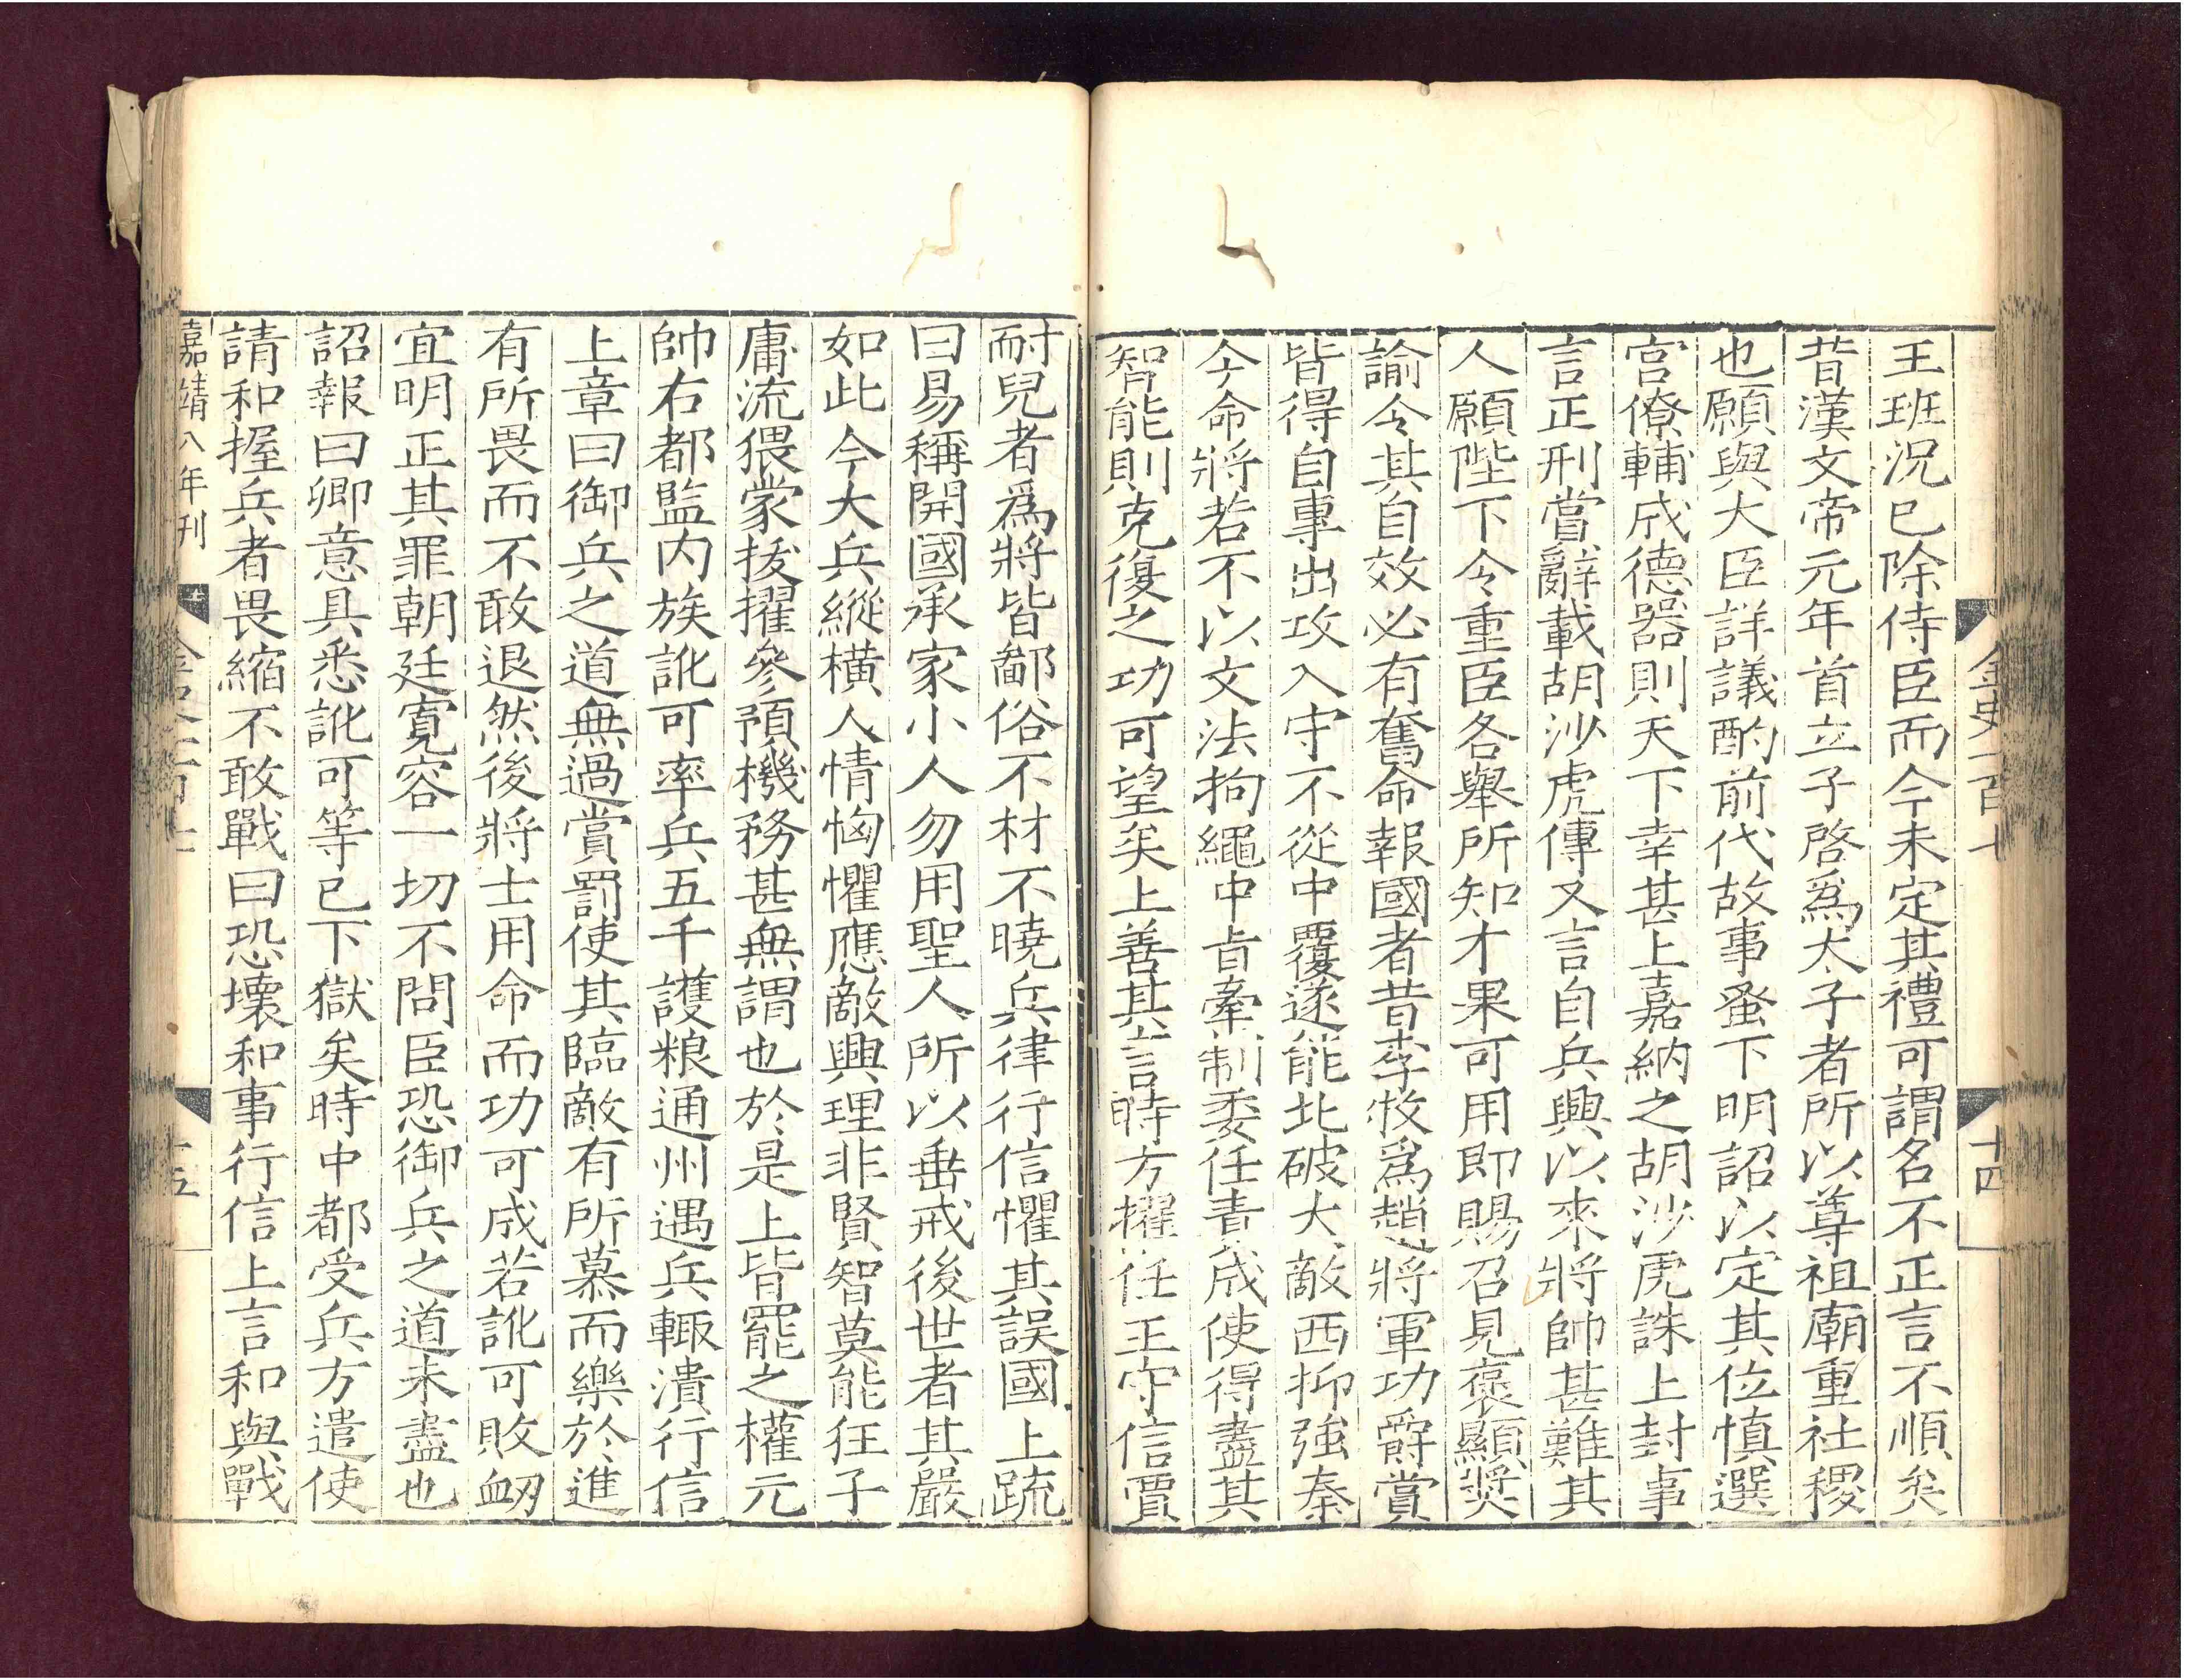 王班況已除侍臣而今未定其禮可謂名不正言不順矣
昔漢文帝元年首立子啓爲太子者所以尊祖廟重社稷
也願與大臣詳議酌前代故事蚤下明詔以定其位慎選
宮僚輔成德器則天下幸甚上嘉納之胡沙虎誅上封事
言正刑嘗辭載胡沙虎傳又言自兵興以來將帥甚難其
人願陛下令重臣各舉所知才果可用即賜召見褒顯奬
諭令其自效必有奮命報國者昔李牧爲趙將軍功爵賞
皆得自專出攻入守不從中覆遂能北破大敵西抑強秦
今命將若不以文法拘繩中旨牽制委任責成使得盡其
智能則克復之功可望矣上善其言時方擢任王守信賈
金史一百七
十四
耐兒者爲將皆鄙俗不材不曉兵律行信懼其誤國上疏
曰易稱開國承家小人勿用聖人所以垂戒後世者其嚴
如此今大兵縱橫人情恟懼應敵興理非賢智莫能狂子
庸流猥蒙拔擢參預機務甚無謂也於是上皆罷之權元
帥右都監内族訛可率兵五千護粮通州遇兵輒潰行信
上章曰御兵之道無過賞罰使其臨敵有所慕而樂於進
有所畏而不敢退然後將士用命而功可成若訛可敗衂
宜明正其罪朝廷寛容一切不問臣恐御兵之道未盡也
詔報曰卿意具悉訛可等已下獄矣時中都受兵方遣使
請和握兵者畏縮不敢戰曰恐壊和事行信上言和與戰
嘉靖八年刊
十五